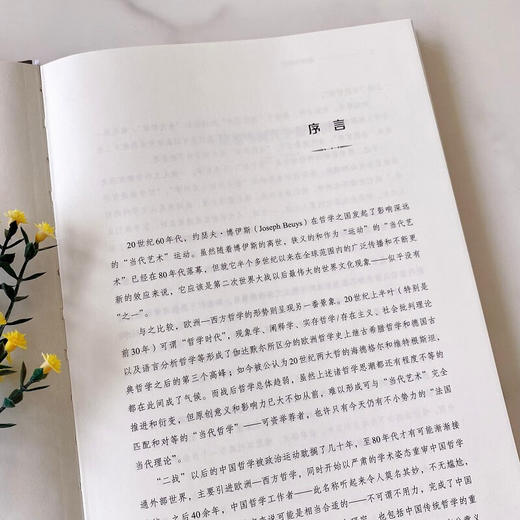 序 言
20世纪60年代，约瑟夫·博伊斯（Joseph Beuys）在哲学之国发起了影响深远
的“当代艺术”运动。虽然随着博伊斯的离世，狭义的和作为“运动”的“当代艺
术”已经在80年代落幕，但就它半个多世纪以来在全球范围内的广泛传播和不断更
新的效应来说，它应该是第二次世界大战以后最伟大的世界文化现象——似乎没有
“之一”。
与之比较，欧洲—西方哲学的形势则呈现另一番景象。20世纪上半叶（特别是
前30年）可谓“哲学时代”，现象学、阐释学、实存哲学/存在主义、社会批判理论
以及语言分析哲学等形成了伽达默尔所区分的欧洲哲学史上继古希腊哲学和德国古
典哲学之后的第三个高峰；如今被公认为20世纪两大哲的海德格尔和维特根斯坦，
都在此间成了气候。而战后哲学总体趋弱，虽然上述诸哲学思潮都还有程度不等的
推进和衍变，但原创意义和影响力已大不如从前，难以形成可与“当代艺术”完全
匹配和对等的“当代哲学”——可资举荐者，也许只有今天仍有不小势力的“法国
当代理论”。
“二战”以后的中国哲学被政治运动耽搁了几十年，至80年代才有可能渐渐接
通外部世界，主要引进欧洲—西方哲学，同时开始以严肃的学术姿态重审中国哲学
之后40余年，中国哲学工作者——此名称听起来令人莫名其妙，不无尴尬，
来说可能是相当合适的——不可谓不用力，完成了中国
也包括中国传统哲学的重